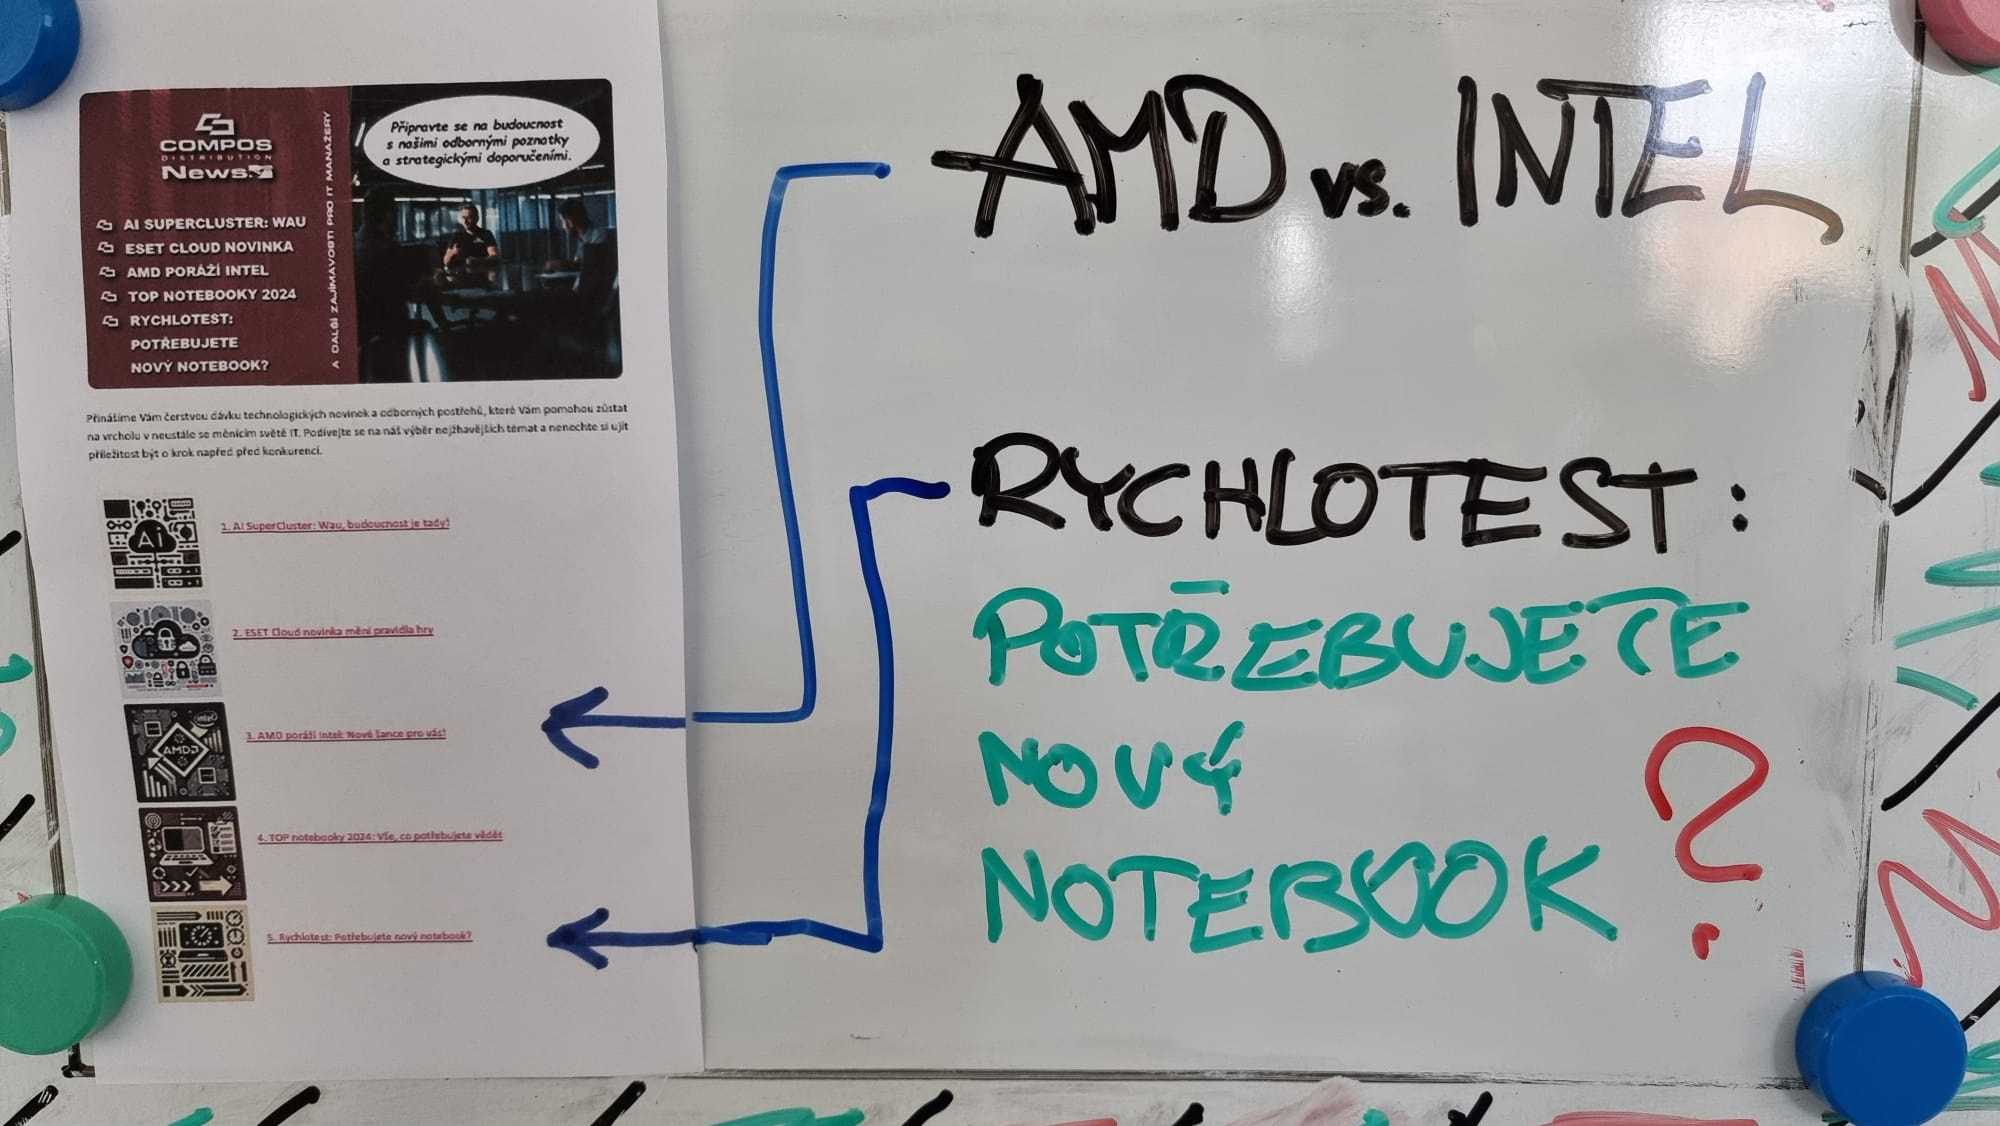 COMPOS
DISTRIBUTION
News
AI SUPERCLUSTER: WAU
ESET CLOUD NOVINKA
AMD PORÁŽÍ INTEL
TOP NOTEBOOKY 2024
RYCHLOTEST:
POTŘEBUJETE
NOVÝ NOTEBOOK?
A DALŠÍ ZAJÍMAVOSTI PRO IT MANAŽERY
Připravte se na budoucnost
s našimi odbornými poznatky
a strategickými doporučeními.
Přinášíme Vám čerstvou dávku technologických novinek a odborných postřehů, které Vám pomohou zůstat
na vrcholu v neustále se měnícím světě IT. Podívejte se na náš výběr nejžhavějších témat a nenechte si ujít
příležitost být o krok napřed před konkurencí.
Ai
1. AI SuperCluster: Wau, budoucnost je tady!
2. ESET Cloud novinka mění pravidla hry
intel
AMD
3. AMD poráží Intel: Nové šance pro vás!
4. TOP notebooky 2024: Vše, co potřebujete vědět
5. Rychlotest: Potřebujete nový notebook?
AMD vs. INTEL
RYCHLOTEST:
POTŘEBUJETE
NOVÝ
NOTEBOOK?